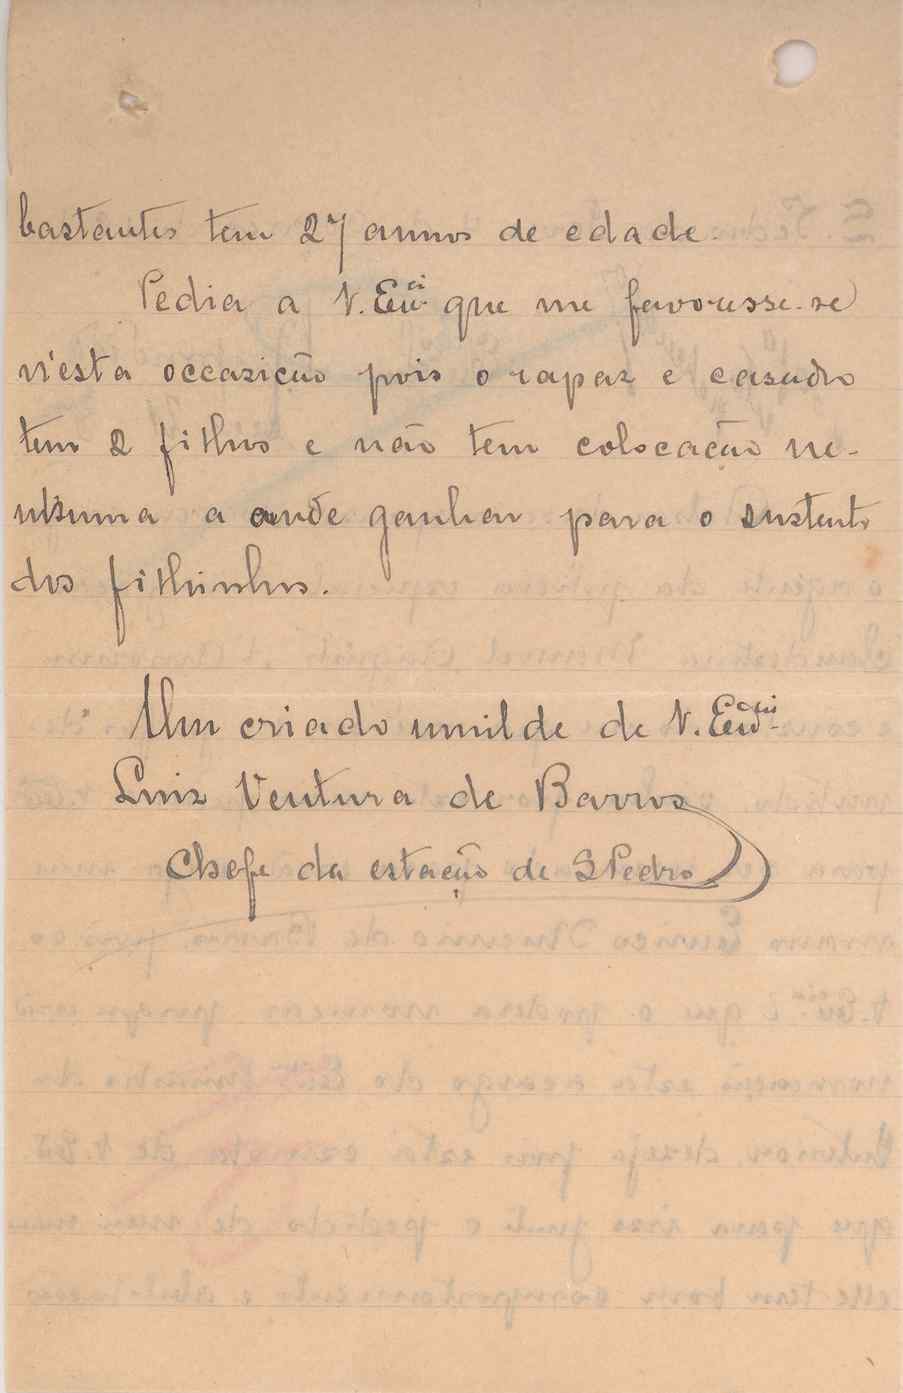 bastantes tem 27 annos de edade.
Pedia a V. Exci. que me favoresse-se
n'esta occazição pois o rapaz e casado
tem 2 filhos e não tem colocação ne-
nhuma a onde ganhar para o sustento
dos filhinhos.
Um criado umilde de V. Exci.
Luiz Ventura de Barros
Chefe da estação de S Pedro